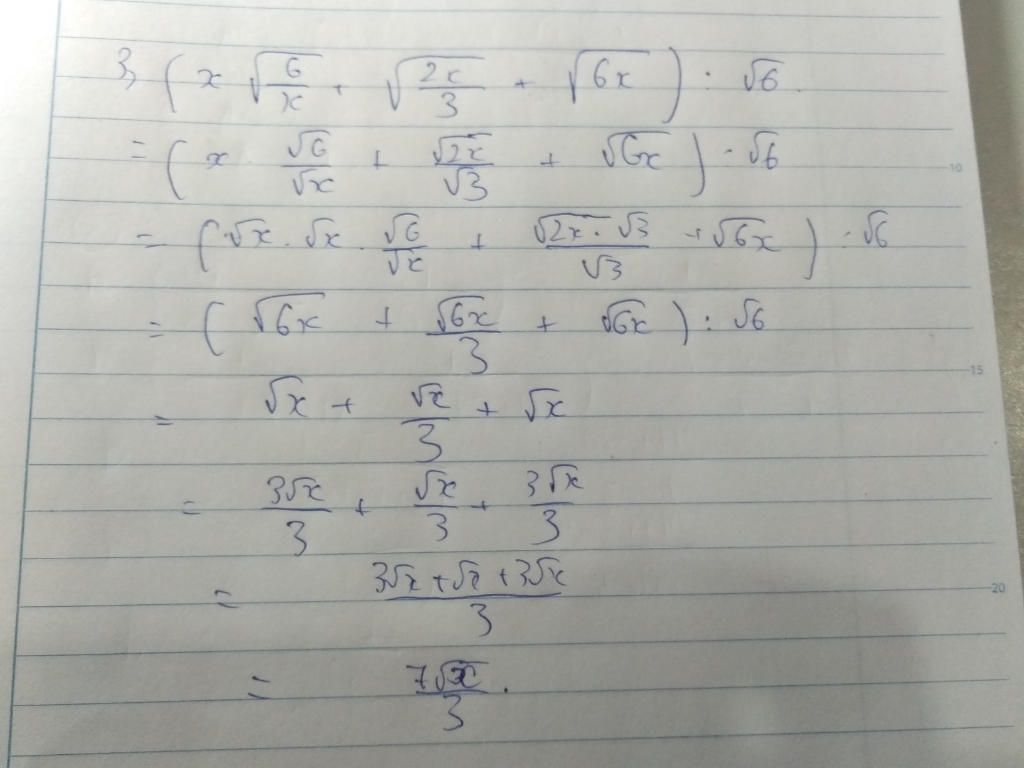 3, (x √(6/x) + √(2x/3) + √(6x)) : √6.
= (x · √6/√x + √(2x)/√3 + √(6x)) · √6
= (√x . √x . √6/√x + (√(2x) · √3)/√3 + √(6x)) : √6
= (√(6x) + √(6x)/3 + √(6x)) : √6
= √x + √x/3 + √x
= 3√x/3 + √x/3 + 3√x/3
= (3√x + √x + 3√x)/3
= 7√x/3.
10
15
20